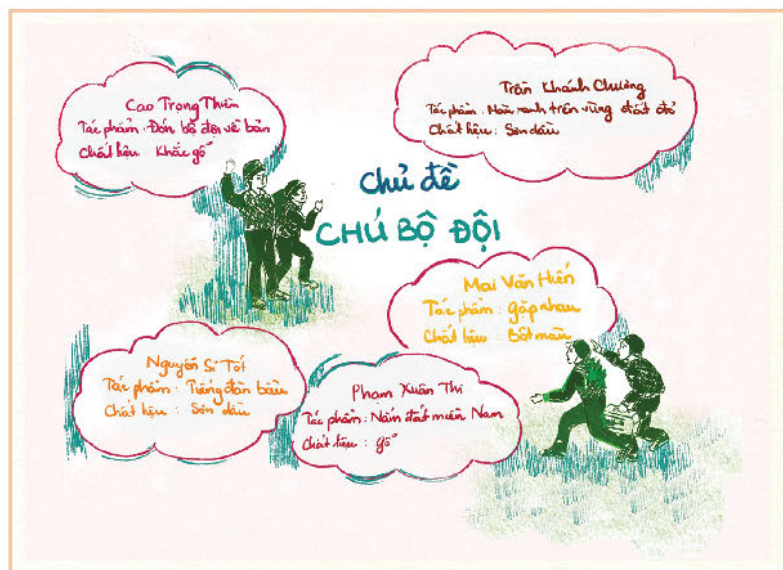 Cao Trọng Thiềm
Tác phẩm: Đón bộ đội về bản
Chất liệu: Khắc gỗ
Trần Khánh Chương
Tác phẩm: Màu xanh trên vùng đất đỏ
Chất liệu: Sơn dầu
Chủ đề
CHÚ BỘ ĐỘI
Mai Văn Hiến
Tác phẩm: gặp nhau
Chất liệu: Bột màu
Nguyễn Sĩ Tốt
Tác phẩm: Tiếng đàn bầu
Chất liệu: Sơn dầu
Phạm Xuân Thi
Tác phẩm: Nắm đất miền Nam
Chất liệu: gỗ